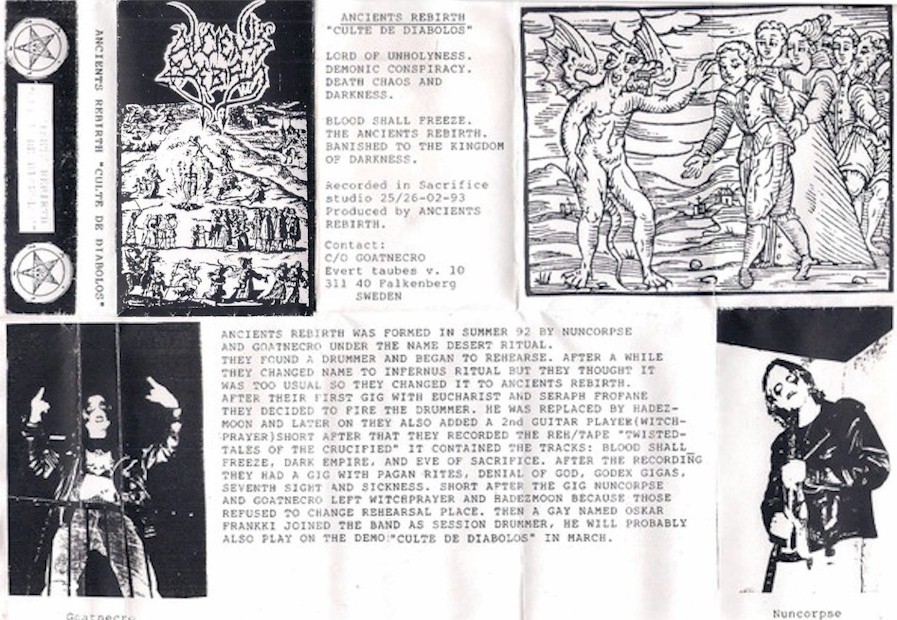 ANCIENTS REBIRTH "CULTE DE DIABOLOS"
ANCIENTS REBIRTH
ANCIENTS REBIRTH
"CULTE DE DIABOLOS"
LORD OF UNHOLYNESS.
DEMONIC CONSPIRACY.
DEATH CHAOS AND
DARKNESS.
BLOOD SHALL FREEZE.
THE ANCIENTS REBIRTH.
BANISHED TO THE KINGDOM
OF DARKNESS.
Recorded in Sacrifice
studio 25/26-02-93
Produced by ANCIENTS
REBIRTH.
Contact:
C/O GOATNECRO
Evert taubes v. 10
311 40 Falkenberg
SWEDEN
ANCIENTS REBIRTH WAS FORMED IN SUMMER 92 BY NUNCORPSE
AND GOATNECRO UNDER THE NAME DESERT RITUAL.
THEY FOUND A DRUMMER AND BEGAN TO REHEARSE. AFTER A WHILE
THEY CHANGED NAME TO INFERNUS RITUAL BUT THEY THOUGHT IT
WAS TOO USUAL SO THEY CHANGED IT TO ANCIENTS REBIRTH.
AFTER THEIR FIRST GIG WITH EUCHARIST AND SERAPH FROFANE
THEY DECIDED TO FIRE THE DRUMMER. HE WAS REPLACED BY HADEZ-
MOON AND LATER ON THEY ALSO ADDED A 2nd GUITAR PLAYER(WITCH-
PRAYER)SHORT AFTER THAT THEY RECORDED THE REH/TAPE "TWISTED-
TALES OF THE CRUCIFIED" IT CONTAINED THE TRACKS: BLOOD SHALL
FREEZE, DARK EMPIRE, AND EYE OF SACRIFICE. AFTER THE RECORDING
THEY HAD A GIG WITH PAGAN RITES, DENIAL OF GOD, GODEX GIGAS,
SEVENTH SIGHT AND SICKNESS. SHORT AFTER THE GIG NUNCORPSE
AND GOATNECRO LEFT WITCHPRAYER AND HADEZMOON BECAUSE THOSE
REFUSED TO CHANGE REHEARSAL PLACE. THEN A GAY NAMED OSKAR
FRANKKI JOINED THE BAND AS SESSION DRUMMER, HE WILL PROBABLY
ALSO PLAY ON THE DEMO "CULTE DE DIABOLOS" IN MARCH.
Goatnecro
Nuncorpse